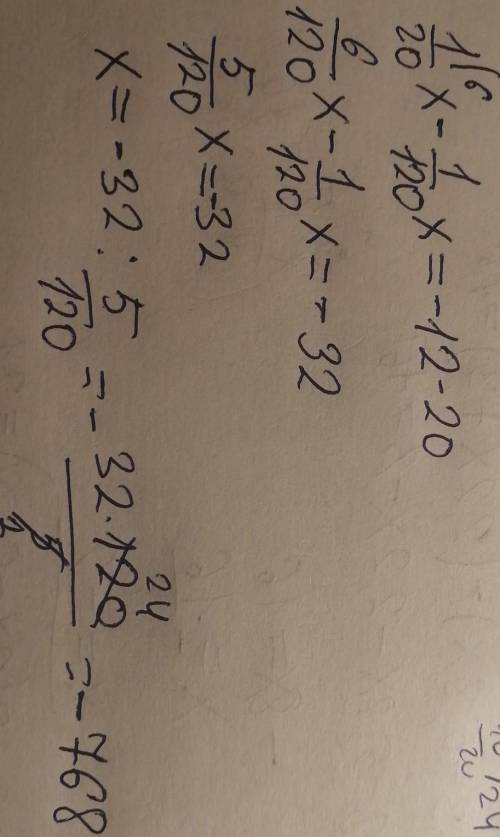 1/20 x - 1/120 x = -12-20
6/120 x - 1/120 x = - 32
5/120 x = -32
x = -32 : 5/120 = - 32·120/5 = - 768
24
1
6